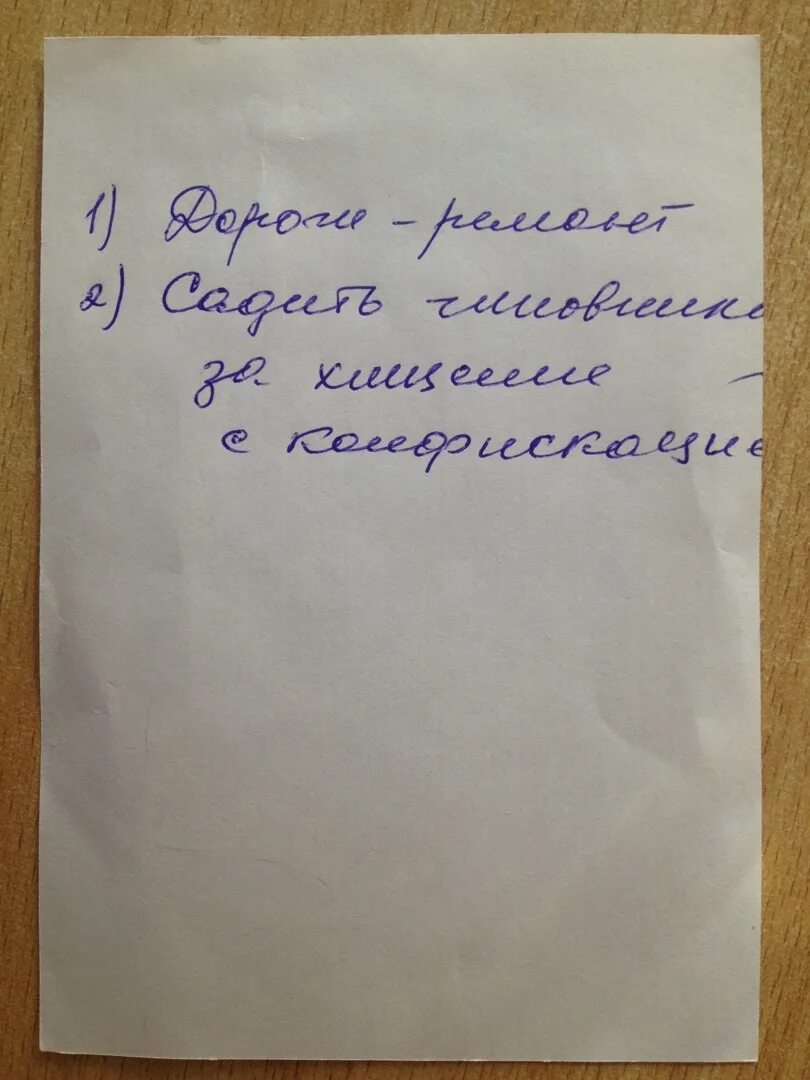 1) Дороги - ремонт
2) Садить чиновника
за хищение -
с конфискацие